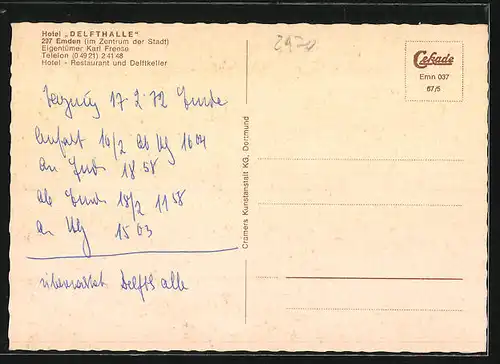 Hotel „DELFTHALLE"
297 Emden (im Zentrum der Stadt)
Eigentümer Karl Freese
Telefon (0 49 21) 2 41 48
Hotel - Restaurant und Delftkeller
2970
Cekade
Emn 037
67/5
Cramers Kunstanstalt KG, Dortmund
17 2 72
16/2 ab 16 04
an 18 58
ab 18/2 11 58
an 15 03
übernachtet Delfthalle